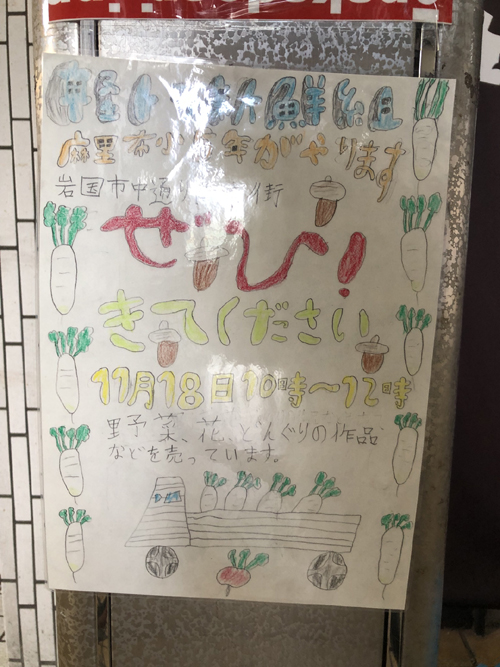 軽トラ新鮮組
麻里布小 年がやります
岩国市中通り 街
ぜひ!
きてください
11月18日10時〜12時
野菜、花、どんぐりの作品
などを売っています。